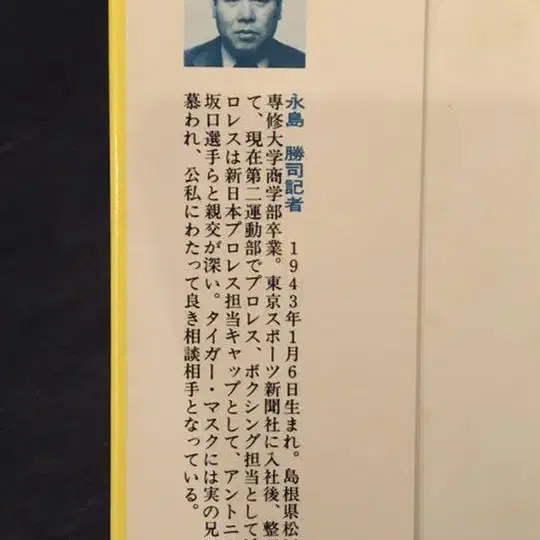 永島 勝司記者 1943年1月6日生まれ。島根県松
専修大学商学部卒業。東京スポーツ新聞社に入社後、整
て、現在第二運動部でプロレス、ボクシング担当として
ロレスは新日本プロレス担当キャップとして、アントニ
坂口選手らと親交が深い。タイガー・マスクには実の兄
慕われ、公私にわたって良き相談相手となっている。